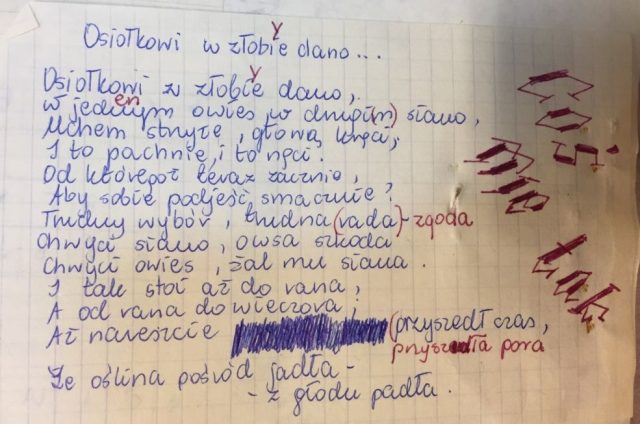 Osiołkowi w złobie dano...
y
Osiołkowi w złobie dano,
y
w jednym owies, w drugi(m) siano,
en
Uchem strzyże, głową kręci,
I to pachnie, i to nęci.
Od któregoż teraz zacznie,
Aby sobie podjeść smacznie?
Trudny wybór, trudna (rada) - zgoda
Chwyci siano, owsa szkoda
Chwyci owies, żal mu siana.
I tak stoi aż do rana,
A od rana do wieczora,
Aż nareszcie (przyszedł czas,
przyszła pora
Że oślina pośród jadła -
- z głodu padła.
Coś
nie
tak